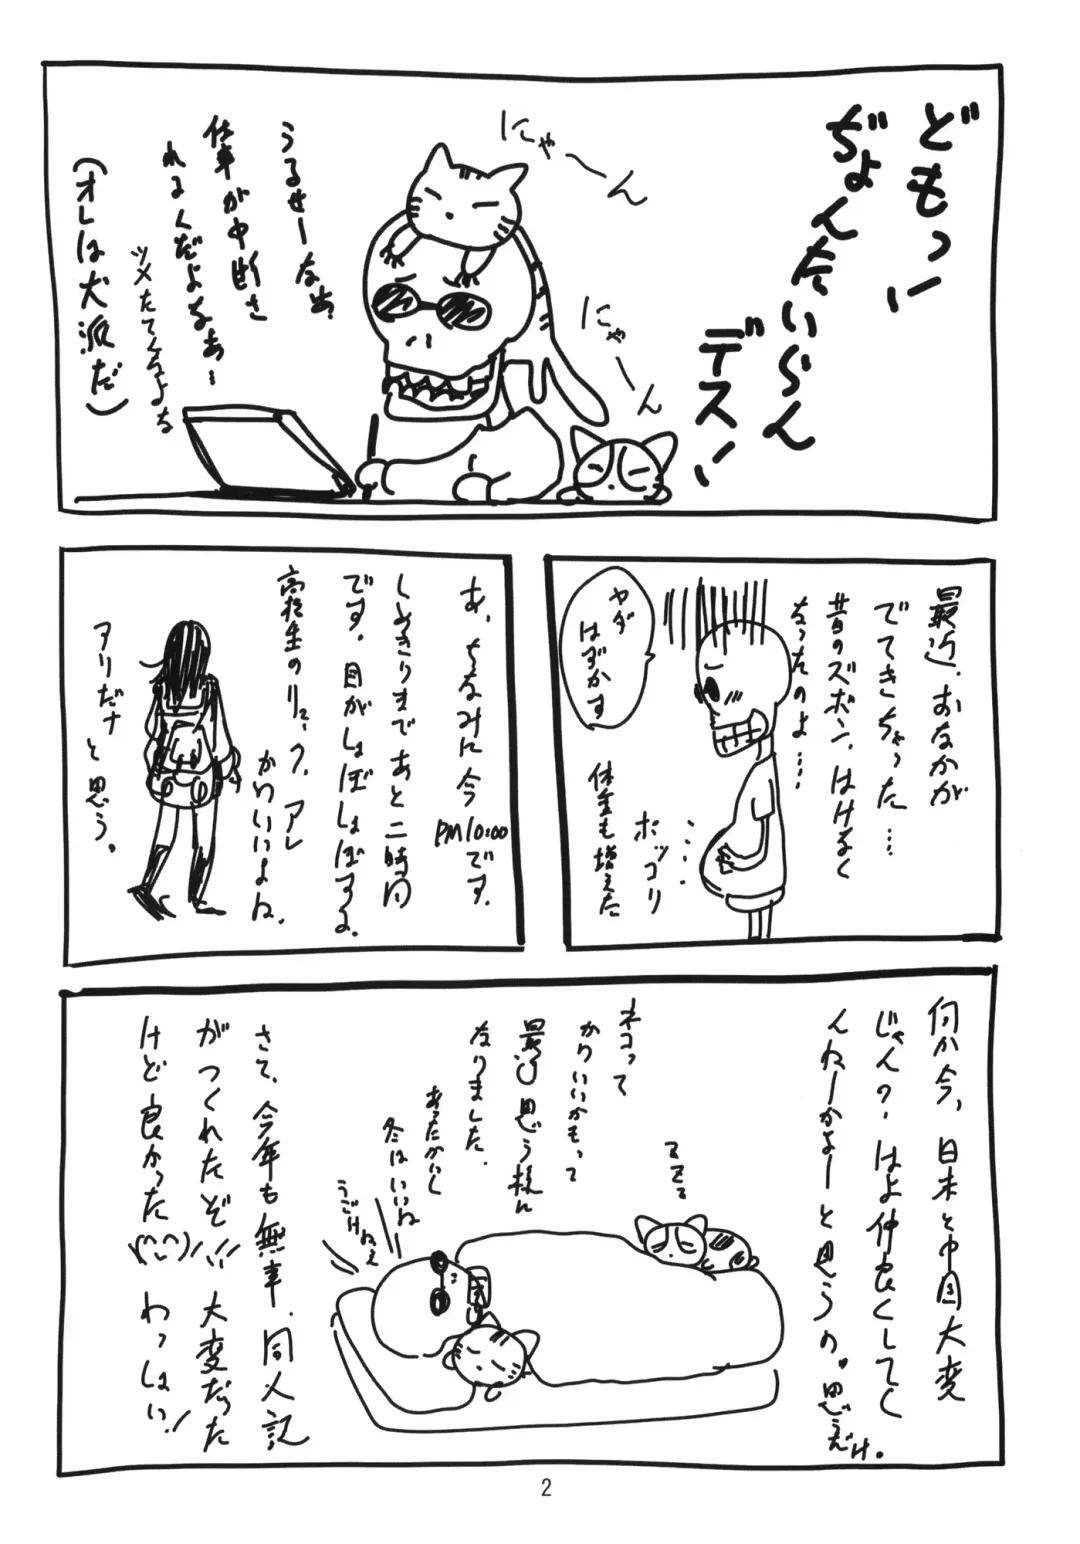 どもっ!
ぢょんたいらん
デス!
にゃ〜ん
にゃ〜ん
うるせーなぁ
仕事が中断さ
れるくだよなぁ…
ツメたてんなよな
(オレは犬派だ)
最近、おなかが
でてきちゃった…
昔のズボン、はけなく
なったのよ…
ヤダ
はずかす
ポッコリ
体重も増えた
あ、ちなみに今
PM10:00です。
しめきりまであと二時間
です。目がしょぼしょぼする。
高校生のリュック、アレ
かわいいよね。
アリだナ
と思う。
何か今、日本と中国大変
じゃん?はよ仲良くしてく
んねーかなーと思うの。思うだけ。
ネコって
かわいいかもって
最近思う様に
なりました。
あったかいし
冬はいいね
うごけねぇ
zzz
さて、今年も無事、同人誌
がつくれたぞ 大変だった
けど良かった わっしょい!
2